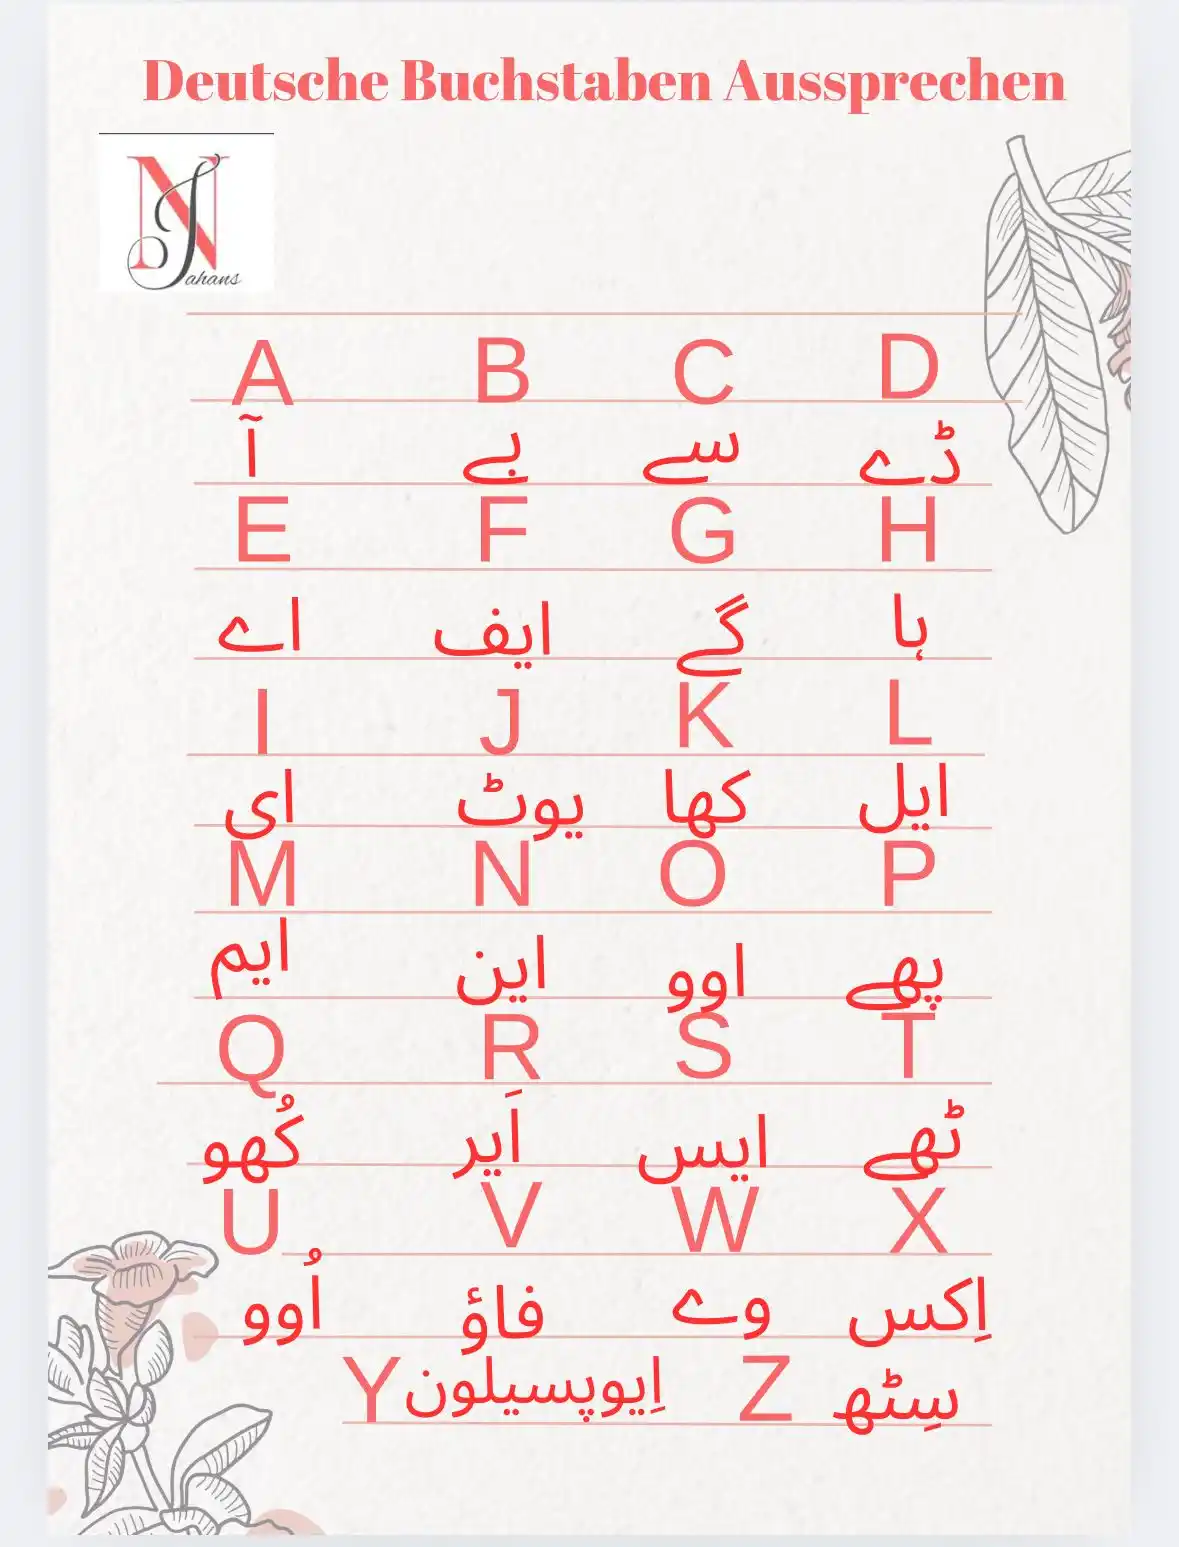 Deutsche Buchstaben Aussprechen
NJahans
A B C D
آ بے سے ڈے
E F G H
اے ایف گے ہا
I J K L
ای یوٹ کھا ایل
M N O P
ایم این اوو پھے
Q R S T
کُھو اَیر ایس ٹھے
U V W X
اُوو فاؤ وے اِکس
Y اِیوپسیلون Z سِٹھ